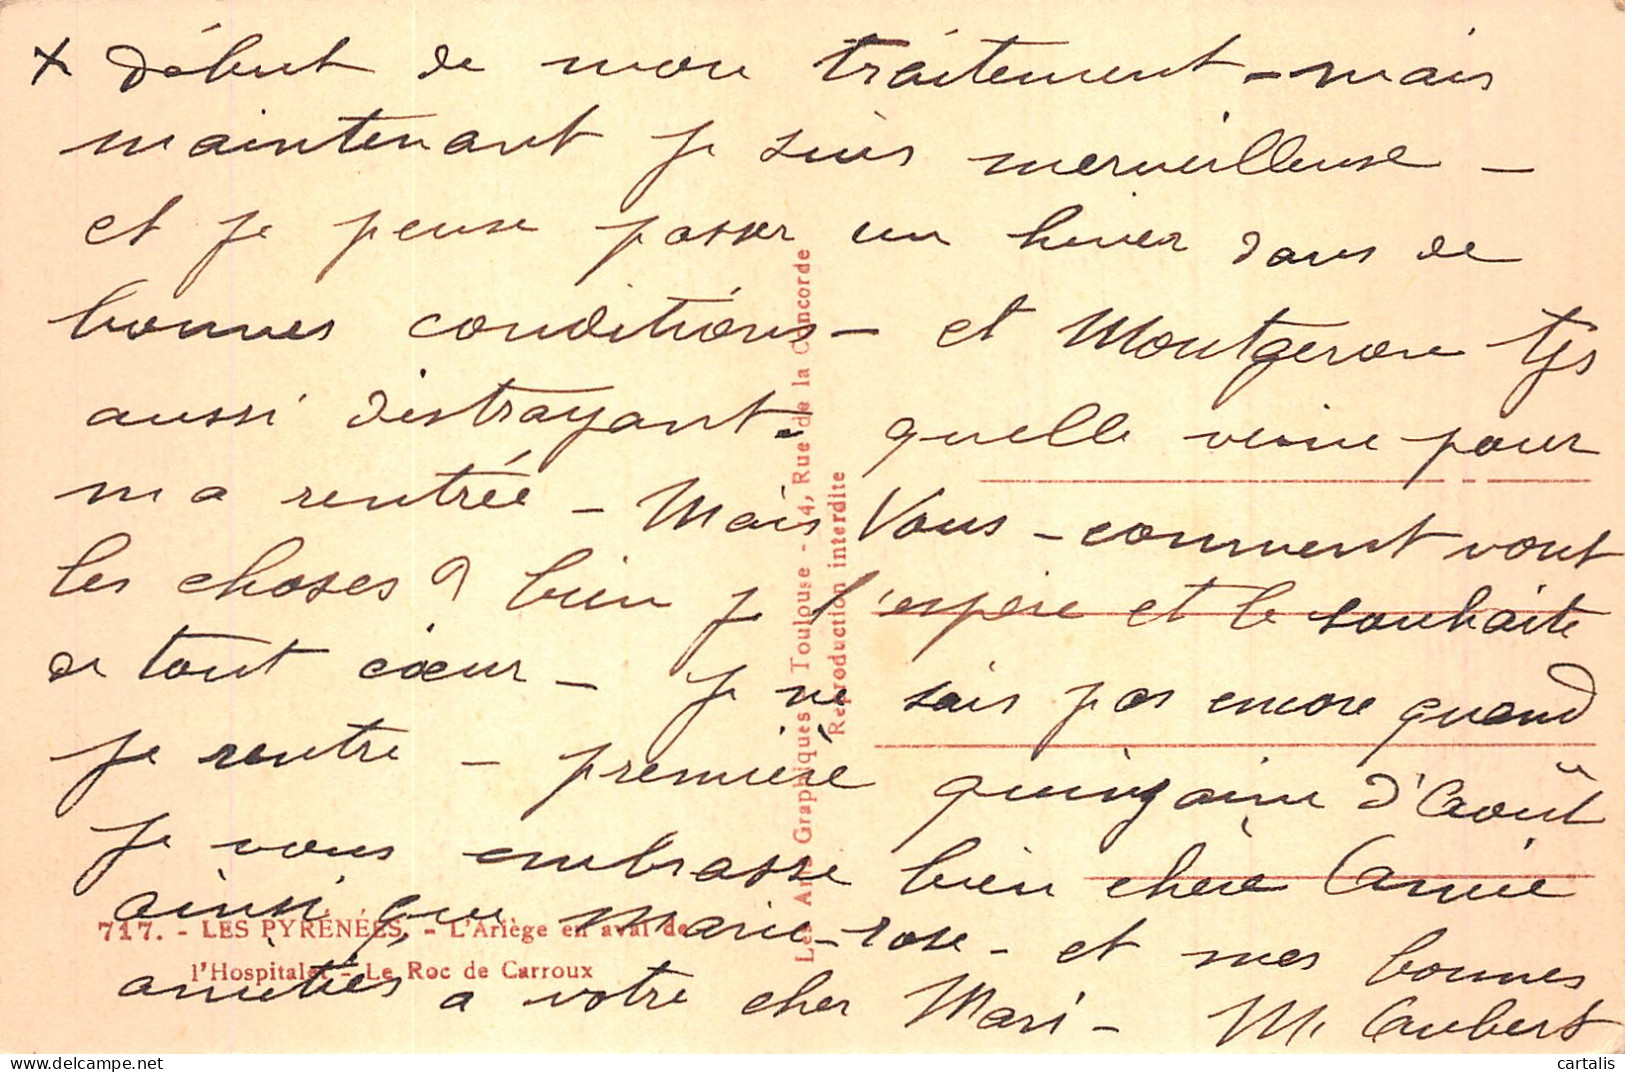 x début de mon traitement - mais
maintenant je suis merveilleuse -
et je pense passer un hiver dans de
bonnes conditions - et Montgeron tjs
aussi distrayant. quelle veine pour
ma rentrée - Mais Vous - comment vont
les choses ? bien je l'espère et le souhaite
de tout cœur - je ne sais pas encore quand
je rentre - première quinzaine d'Août
je vous embrasse bien chère Amie
ainsi que Marie-rose - et mes bonnes
amitiés à votre cher Mari - M. Aubert
717. - LES PYRÉNÉES. - L'Ariège en aval de
l'Hospitalet - Le Roc de Carroux
Les Arts Graphiques Toulouse - 4, Rue de la Concorde
Reproduction interdite
cartalis